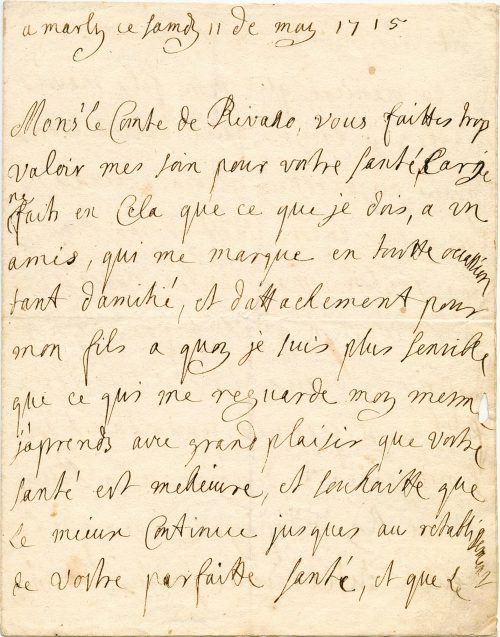 a marly ce samdy 11 de may 1715
Monsr le Comte de Rivaso, vous faittes trop
valoir mes soin pour vostre santé, Car je
ne faits en Cela que ce que je dois, a un
amis, qui me marque en toutte occassion
tant damitié, et dattachement pour
mon fils a quoy je suis plus sensible
que ce qui me reguarde moy mesme
j'aprends avec grand plaisir que vostre
santé est meilieure, et souhaitte que
le mieux Continue jusques au retablissement
de vostre parfaitte santé, et que le